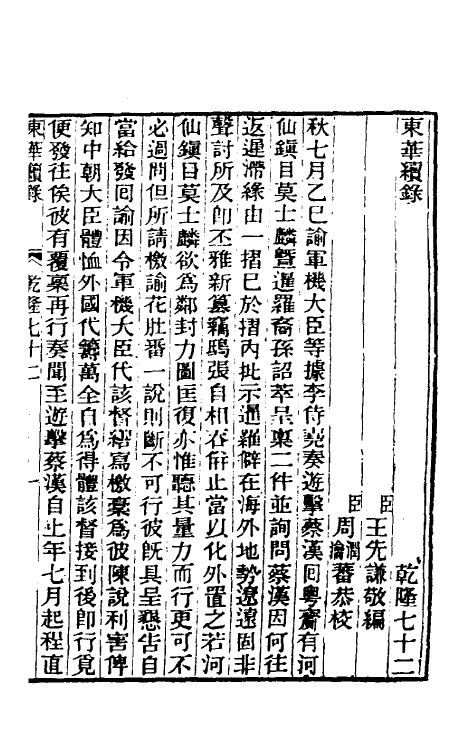 東華續錄　乾隆七十二
臣王先謙敬編
臣周潤蕃周瀹蕃恭校
秋七月乙巳諭軍機大臣等據李侍堯奏遊擊蔡漢囘粵齎有河
仙鎭目莫士麟曁暹羅裔孫詔萃呈稟二件並詢問蔡漢因何往
返遲滯緣由一摺已於摺內批示暹羅僻在海外地勢遼遠固非
聲討所及卽丕雅新簒竊鴟張自相吞倂止當以化外置之若河
仙鎭目莫士麟欲爲鄰封力圖匡復亦惟聽其量力而行更可不
必過問但所請檄諭花肚番一說則斷不可行彼旣具呈懇吿自
當給發囘諭因令軍機大臣代該督繕寫檄稾爲彼陳說利害俾
知中朝大臣體恤外國代籌萬全自爲得體該督接到後卽行覓
便發往俟彼有覆稟再行奏聞至遊擊蔡漢自上年七月起程直
東華續錄　乾隆七十二　一